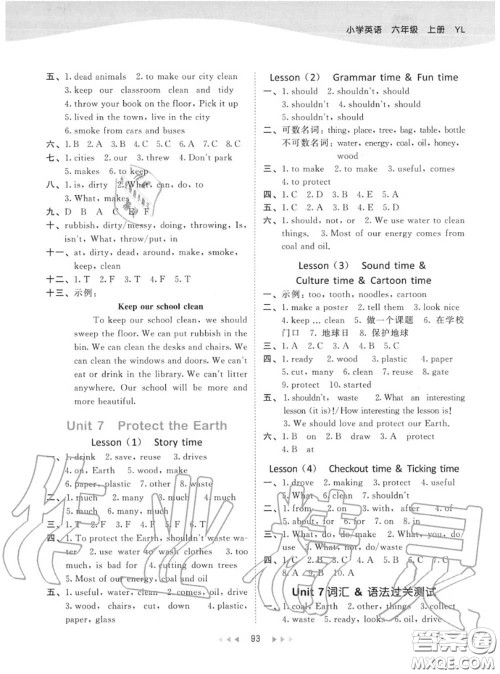 小学英语 六年级 上册 YL
五、1. dead animals 2. to make our city clean
3. keep our classroom clean and tidy
4. throw your book on the floor, Pick it up
5. lived in the town, live in the city
6. smoke from cars and buses
六、1. B 2. A 3. B 4. C 5. B 6. A 7. C 8. C
七、1. cities 2. our 3. threw 4. Don't park
5. makes 6. to keep
八、1. is, dirty 2. What, can, do, to
3. What, makes
九、D B A C E F
十、rubbish, dirty/messy, doing, throwing, Is,
isn't, What, throw/put, in
十一、at, dirty, dead, around, make, smoke,
keep, clean
十二、1. T 2. F 3. F 4. F 5. T
十三、示例：
Keep our school clean
To keep our school clean, we should
sweep the floor. We can put rubbish in the
bin. We can clean the desks and chairs. We
can clean the windows and doors. We can't
eat or drink in the library. We can't litter
anywhere. Our school will be more and
more beautiful.
Unit 7 Protect the Earth
Lesson (1) Story time
一、1. drink 2. save, reuse 3. drives
4. on, Earth 5. Wood, is, useful
6. paper, plastic 7. other 8. waste
二、1. much 2. many 3. much 4. much
5. many
三、1. T 2. T 3. F 4. F 5. T
四、1. To protect the Earth, shouldn't waste wa-
ter 2. reuse water to wash clothes 3. too
much, is bad for 4. cutting down trees
5. Most of our energy, coal and oil
五、1. useful, water, clean 2. comes, oil, drive
3. energy, save, coal 4. cut, down, plastic,
paper, glass
Lesson (2) Grammar time & Fun time
一、1. should 2. shouldn't, should
3. shouldn't, should 4. should, shouldn't
5. should, shouldn't
二、可数名词：thing, place, tree, bag, table, bottle
不可数名词：water, energy, coal, oil, honey,
wood
三、1. to make 2. to make 3. useful, comes
4. to protect
四、1. C 2. D 3. B 4. E 5. A
五、1. C 2. D 3. A 4. E 5. D
六、1. should, not, or 2. We use water to clean
things. 3. Most of our energy comes from
coal and oil.
Lesson (3) Sound time &
Culture time & Cartoon time
一、示例：too, tooth, noodles, cartoon
二、1. make a poster 2. tell them 3. look nice
4. keep … clean 5. 做一个课题 6. 在学校
门口 7. 地球日 8. 保护地球
三、1. C 2. C 3. B 4. C 5. A
四、1. ready 2. wood 3. plastic 4. paper
5. cut 6. reuse 7. rubbish 8. gate
9. protect 10. started
五、1. shouldn't, waste 2. What an interesting
lesson (it is)!/How interesting the lesson is!
3. We should love and protect our Earth.
六、1. on 2. B draw 3. A protect
4. B at
Lesson (4) Checkout time & Ticking time
一、1. drove 2. making 3. many 4. useful
5. What 6. clean 7. shouldn't
二、1. from 2. on 3. with 4. after 4. of
5. about, for 6. to 7. on 8. in
三、1. What, do, do, make 2. What, you, do,
use 3. What, not, do/waste
8. A 9. B 10. A
Unit 7 词汇 & 语法过关测试
一、1. coal, Earth 2. other, things 3. collect
4. rubbish 5. wait 6. waste
93